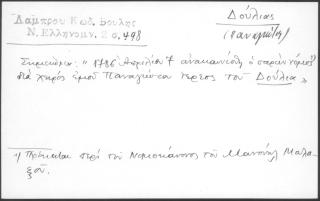 Λάμπρου Κωδ. Βουλής
Ν. Ελληνομν. 2 σ. 498
Δούλιας
(Παναγιώτης)
Σημείωσις: "1786 Απριλίου 7 ανεκαινίσθη ο παρών νόμος
διά χειρός εμού Παναγιώτου του Δούλια"
1) Πρόκειται περί του Νομοκάνονος του Μανουήλ Μαλα-
ξού.